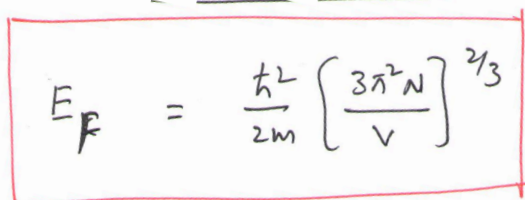 E_F = ℏ²/2m [3π²N/V]^2/3